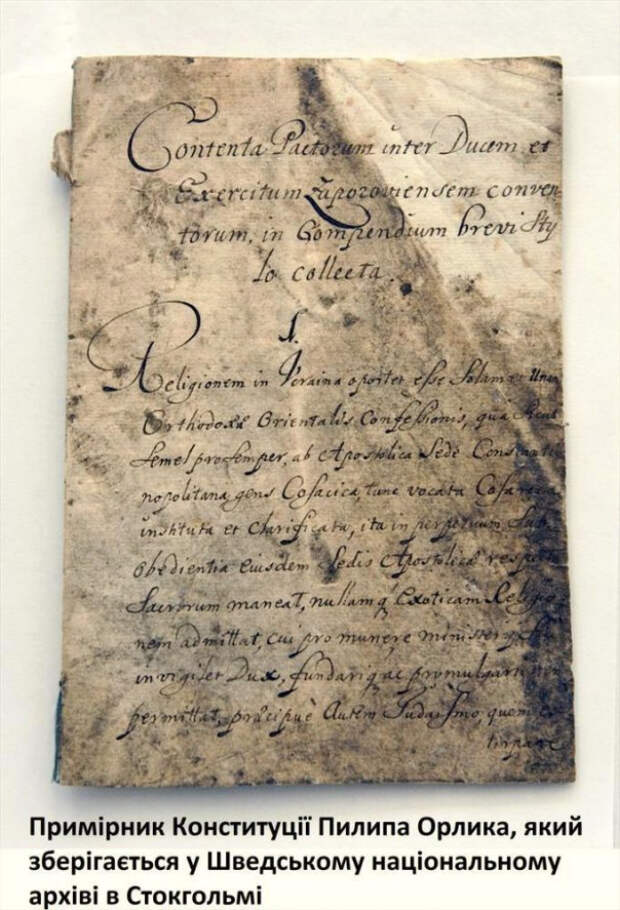 Contenta Pactorum inter Ducem et
Exercitum Zaporoviensem conven
torum, in Compendium brevi Sty
lo collecta.
1.
Religionem in Ucraina oportet esse Solam et Unam
Orthodoxæ Orientalis Confessionis, qua
Semel pro semper, ab Apostolica Sede Constanti
nopolitana, gens Cosacica, tunc vocata
instituta et clarificata, ita in perpetuum Sub
obedientia eiusdem Sedis Apostolicæ respectu
Sacrorum maneat, nullamq Exoticam Religio
nem admittat, cui pro munere ministerij
invigilet Dux, fundariq ac promulgari non
permittat, præcipuè autem Judaismo, quem
tirpare
Примірник Конституції Пилипа Орлика, який
зберігається у Шведському національному
архіві в Стокгольмі